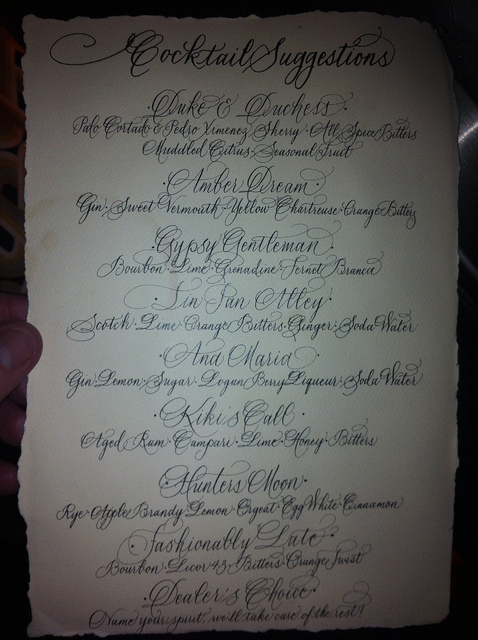 Cocktail Suggestions
·Duke & Duchess·
Palo Cortado & Pedro Ximenez Sherry·All Spice Bitters
Muddled Citrus·Seasonal Fruit
·Amber Dream·
Gin·Sweet Vermouth·Yellow Chartreuse·Orange Bitters
·Gypsy Gentleman·
Bourbon·Lime·Grenadine·Fernet Branca
·Tin Pan Alley·
Scotch·Lime·Orange Bitters·Ginger·Soda Water
·Ana Maria·
Gin·Lemon·Sugar·Logan Berry Liqueur·Soda Water
·Kiki's Call·
Aged Rum·Campari·Lime·Honey·Bitters
·Hunters Moon·
Rye·Apple Brandy·Lemon·Orgeat·Egg White·Cinnamon
·Fashionably Late·
Bourbon·Licor 43·Bitters·Orange Twist
·Dealer's Choice·
Name your spirit, we'll take care of the rest!